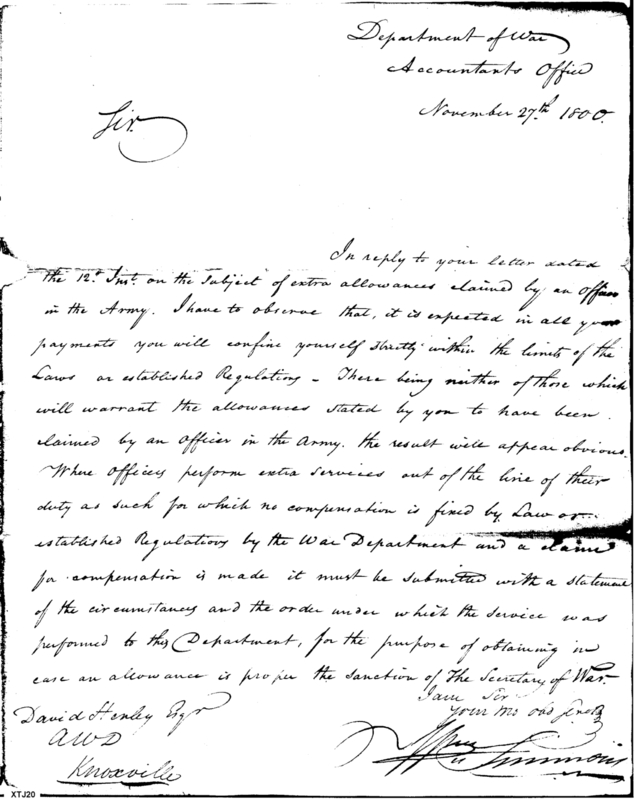 Department of War
Accountants Office
November 27th 1800.
Sir.
In reply to your letter dated
the 12th Inst. on the subject of extra allowances claimed by an Officer
in the Army. I have to observe that, it is expected in all your
payments you will confine yourself strictly within the limits of the
Laws or established Regulations - There being neither of those which
will warrant the allowances stated by you to have been
claimed by an Officer in the Army. the result will appear obvious.
Where Officers perform extra services out of the line of their
duty as such for which no compensation is fixed by Law or
established Regulations by the War Department and a claim
for compensation is made it must be submitted with a statement
of the circumstances and the order under which the service was
performed to this Department, for the purpose of obtaining in
case an allowance is proper the sanction of The Secretary of War.
I am Sir
Your Mo Obd Servt
David Henley Esqr
AWD
Knoxville
Wm Simmons
XTJ20